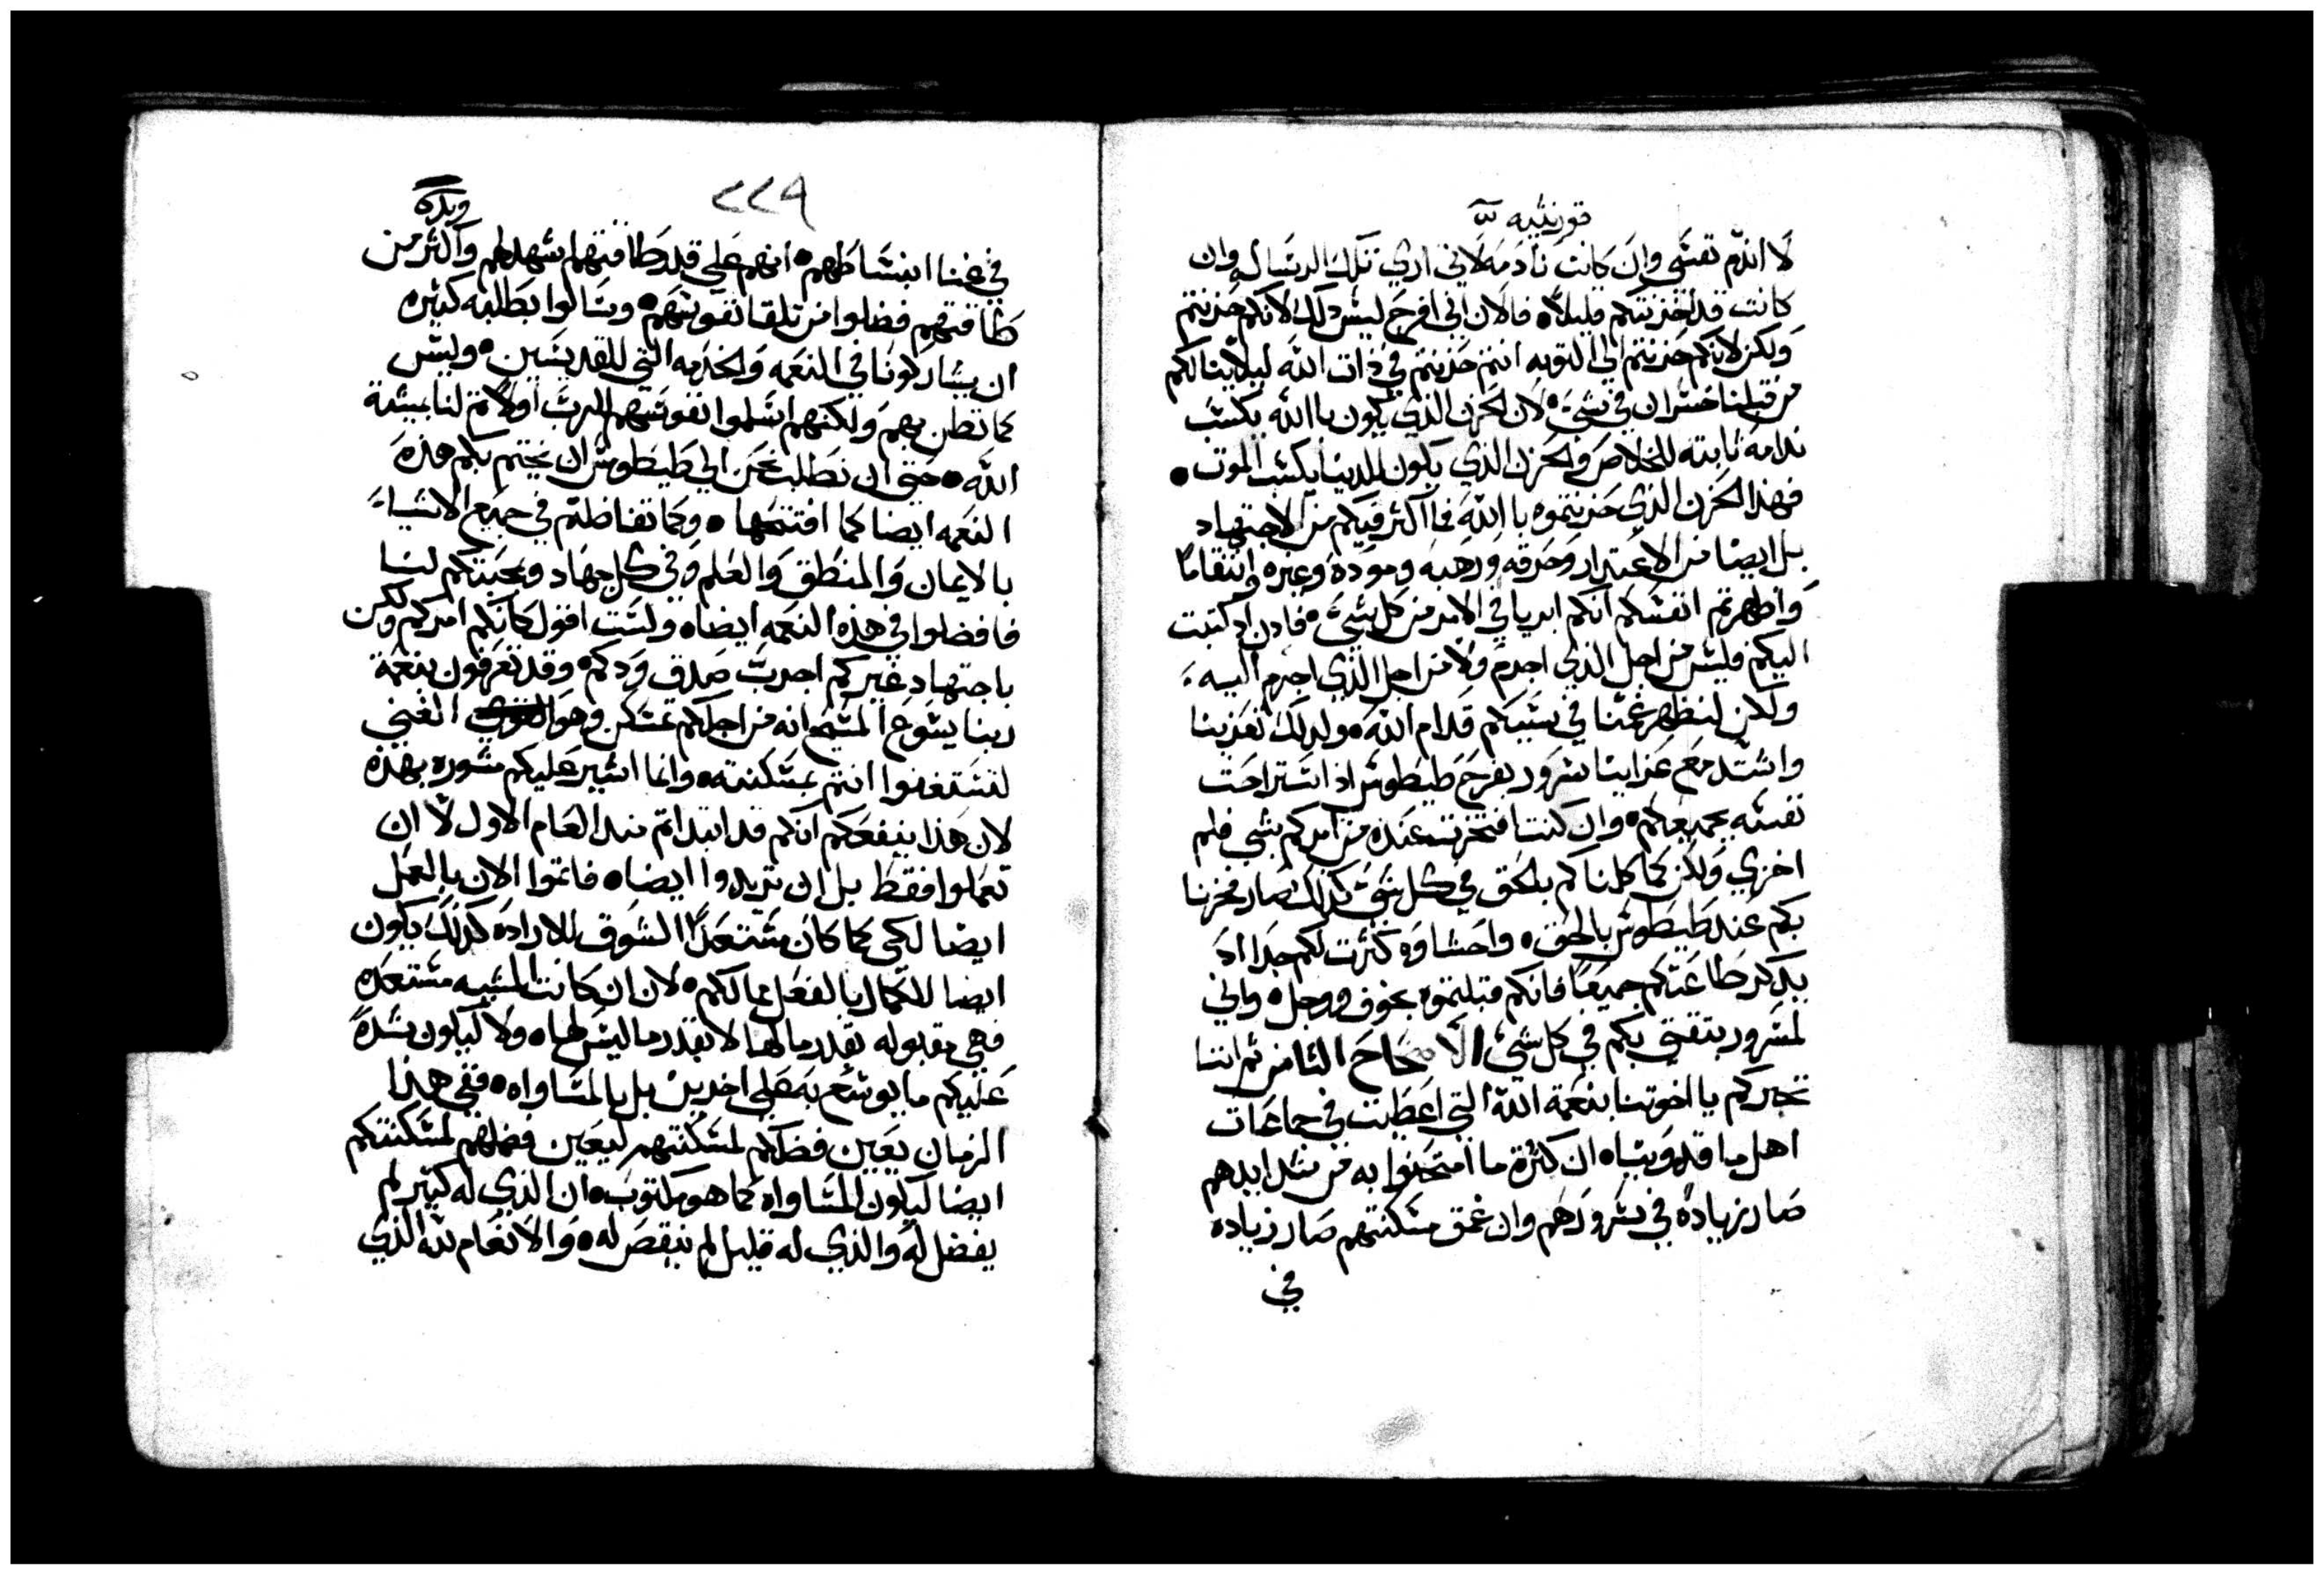 قورنثيه
لا اندم نفسي وان كانت نادمه لاني اري تلك الرساله وان
كانت قد احزنتكم قليلاً فالان اني افرح ليس ذلك لانكم حزنتم
ولكن لانكم حزنتم الي التوبه انتم حزنتم في ذات الله ليلا ينالكم
من قبلنا خسران في شيء لان الحزن الذي يكون بالله يكسب
ندامه ثابته للخلاص والحزن الذي يكون للدنيا يكسب الموت
فهذا الحزن الذي حزنتموه بالله فما اكثر فيكم من الاجتهاد
بل ايضا من الاعتدار وحرقه ورهبه وموده وغيره وانتقاما
واظهرتم انفسكم انكم ابريا في الامر من كل شيء فادن اد كتبت
اليكم فليس من اجل الذي اجرم ولا من اجل الذي اجرم اليه
ولكن لنظهر عمنا في سببكم قدام الله ولدلك تعزينا
واشتد مع عزاينا سرور بفرح طيطوس اذ استراحت
نفسه بجميعكم وان كنت افتخرت عنده من امركم بشي فلم
اخزي ولكن كما كلمناكم بالحق في كل شي كدلك صار فخرنا
بكم عند طيطوس بالحق واحشاوه كثرت لكم جدا اد
يدكر طاعتكم جميعا فانكم قبلتموه بخوف ووجل واني
لمسرور بثقتي بكم في كل شيء الاصحاح الثامن ثم اننا
نخبركم يا اخوتنا بنعمة الله التي اعطيت في جماعات
اهل ماقدونيا ان كثرة ما امتحنوا به من شدايدهم
صار زياده في سرورهم وان عمق مسكنتهم صار زياده
في
٢٢٩
في غنا انبساطهم انهم علي قدر طاقتهم اشهد لهم واكثر من
طاقتهم فضلوا من تلقا نفوسهم وسالوا بطلبه كثيره
ان يشاركونا في النعمه والخدمه التي للقديسين وليس
كما نظن بهم ولكنهم اسلموا نفوسهم للرب اولا ثم لنا بمشية
الله حتي ان نطلب نحن الي طيطوس ان يختم بكم هذه
النعمه ايضا كما افتتحها وكما تفاضلتم في جميع الاشياء
بالايمان والمنطق والعلم وفي كل جهاد ومحبتكم لنا
فافضلوا في هذه النعمه ايضا ولست اقول كانكم امركم ولكن
باجتهاد غيركم اجرب صدق ودكم وقد تعرفون بنعمة
ربنا يسوع المسيح انه من اجلكم تمسكن وهو الغني
لتستغنوا انتم بمسكنته وانما اشير عليكم مشوره بهذه
لان هذا ينفعكم انكم قد ابتداتم منذ العام الاول لا ان
تعملوا فقط بل ان تريدوا ايضا فاتموا الان بالعمل
ايضا لكي كما كان مستعدا الشوق للاراده كذلك يكون
ايضا للكمال بالفعل مما لكم لان ان كانت المشيه مستعده
فهي مقبوله بقدر ما لها لا بقدر ما ليس لها ولا ليكون شدة
عليكم ما يوسع به علي اخرين بل بالمساواه ففي هذا
الزمان يعين فضلكم لمسكنتهم ليعين فضلهم لمسكنتكم
ايضا ليكون المساواه كما هو مكتوب ان الذي له كثير لم
يفضل له والذي له قليل لم ينقص له والانعام لله الذي